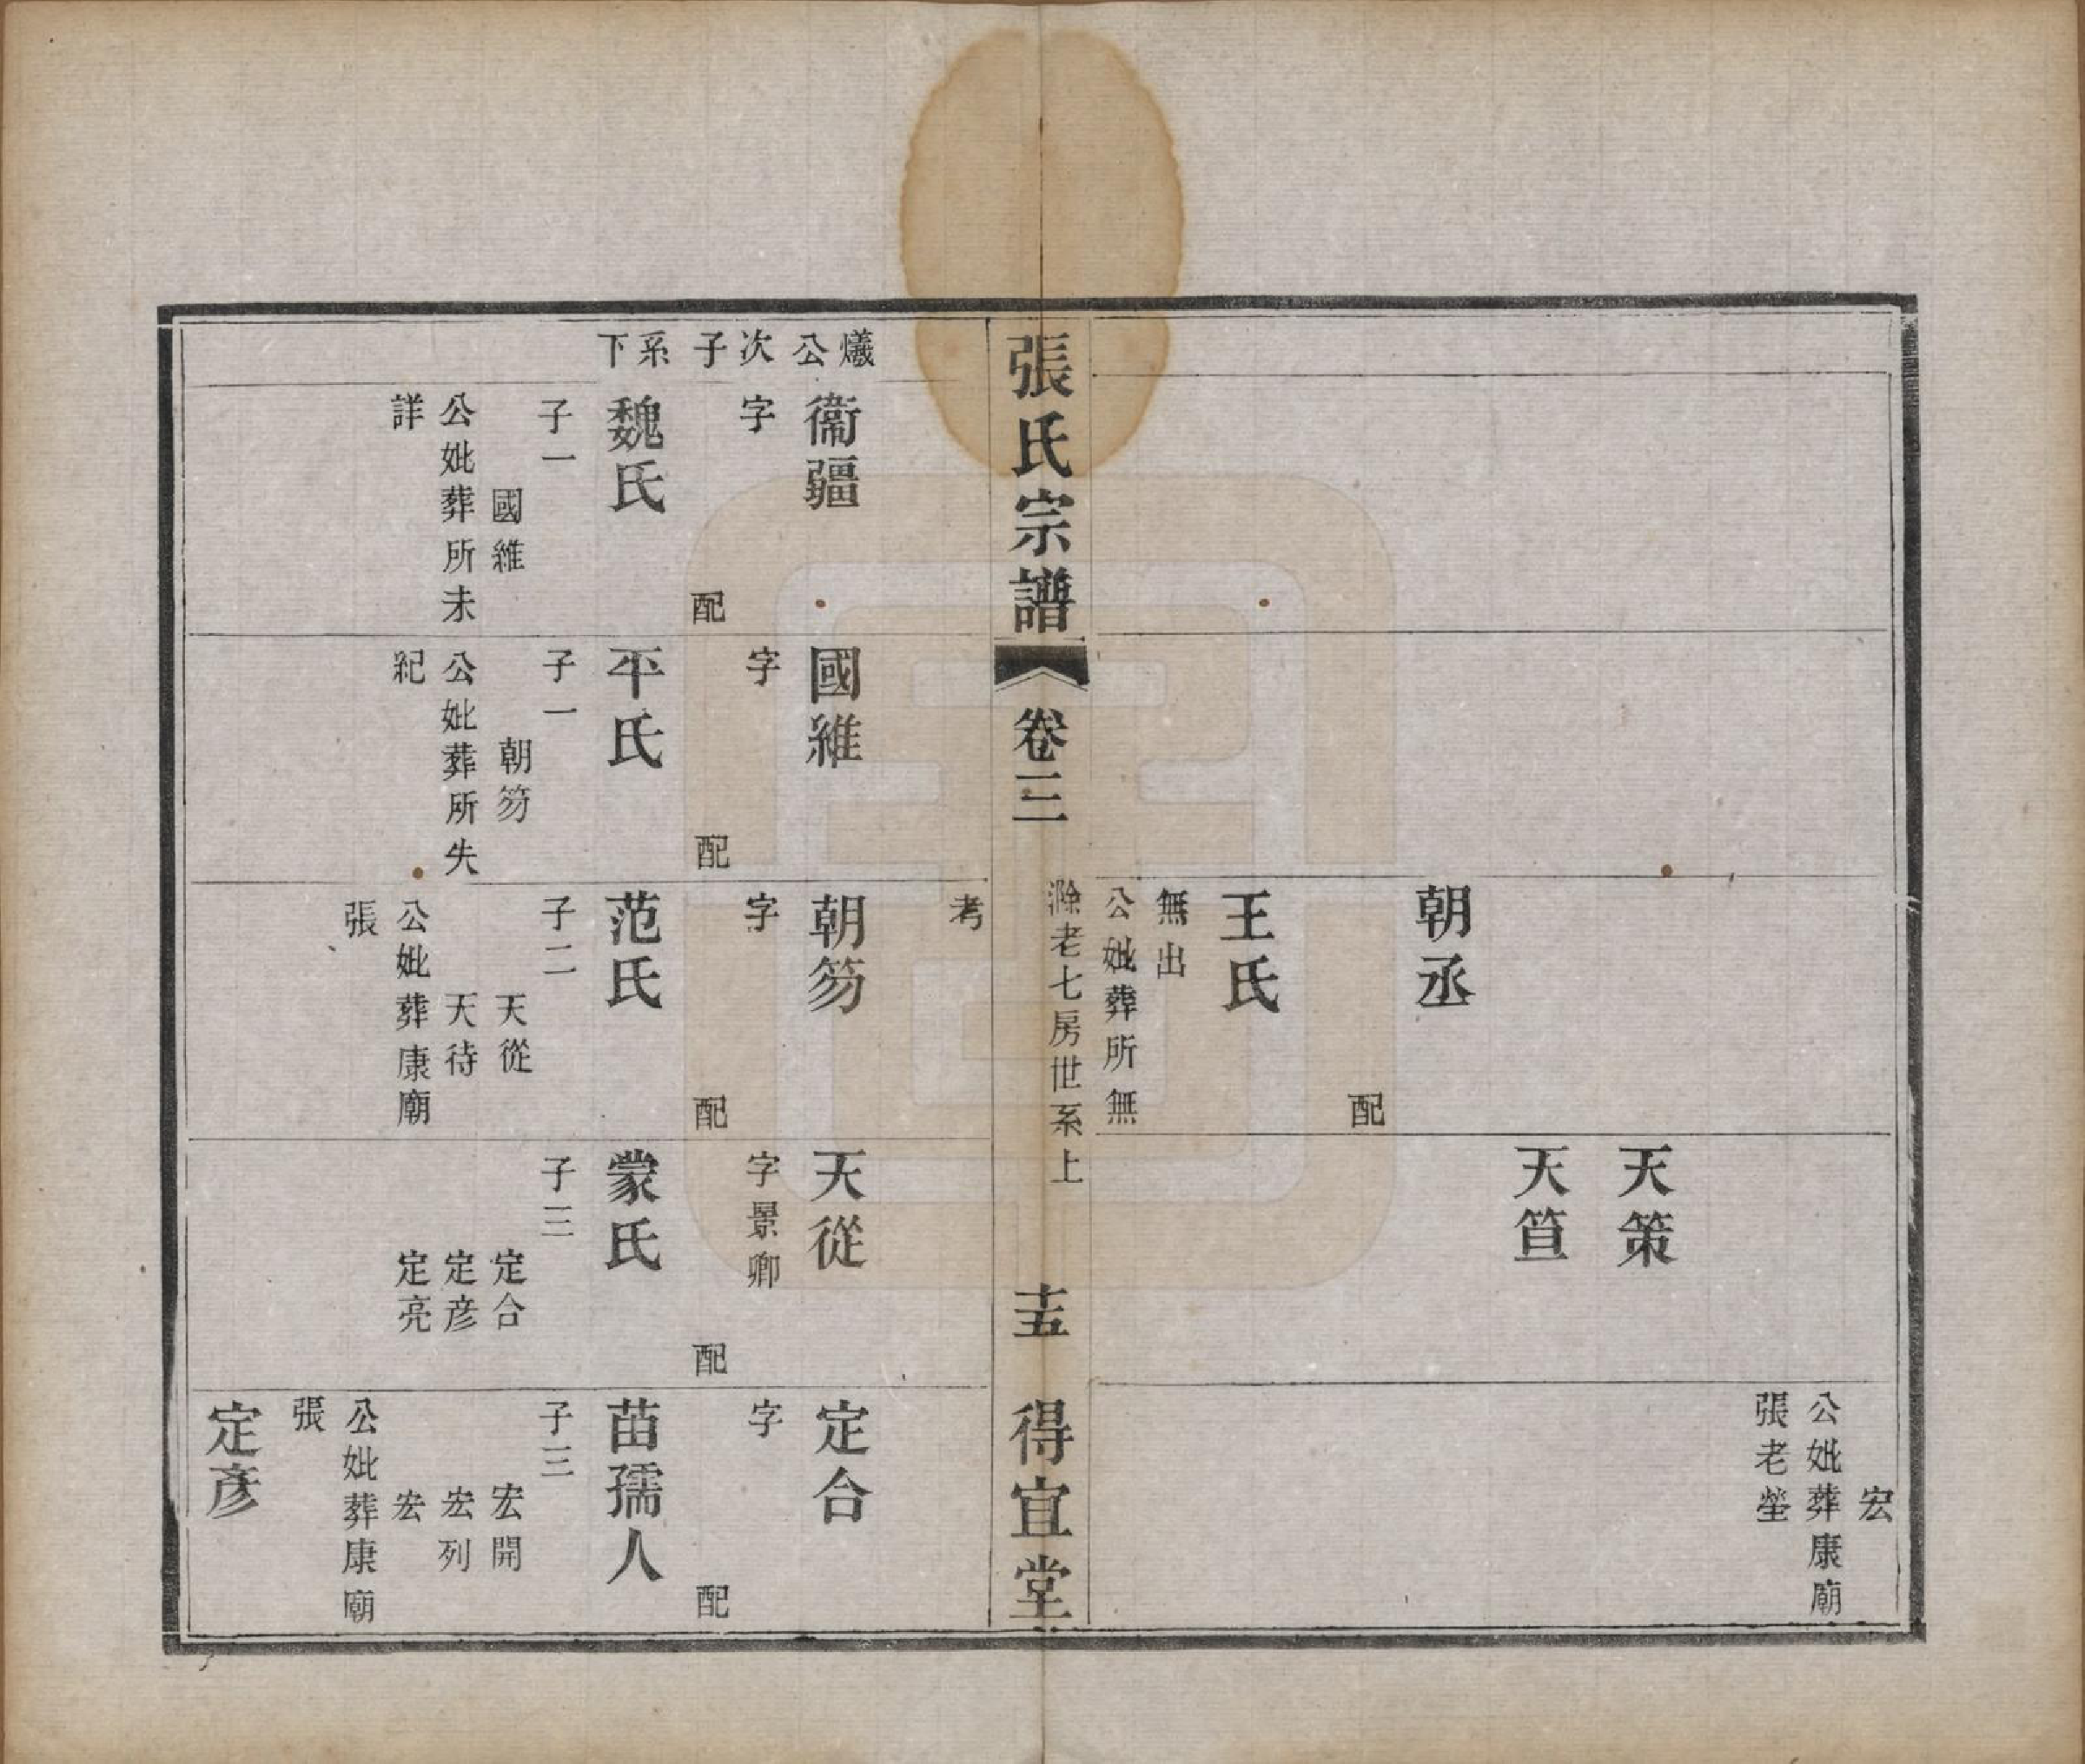 朝丞
配
王氏
無出
公妣葬所無
天策
天笡
宏
公妣葬康廟
張老塋
張氏宗譜
卷三
滁老七房世系上
十五
得宜堂
爔公次子系下
衞疆
字
配
魏氏
子一
國維
公妣葬所未
詳
國維
字
配
平氏
子一
朝笏
公妣葬所失
紀
考
朝笏
字
配
范氏
子二
天從
天待
公妣葬康廟
張
天從
字景卿
配
蒙氏
子三
定合
定彦
定亮
定合
字
配
苗孺人
子三
宏開
宏列
宏
公妣葬康廟
張
定彥